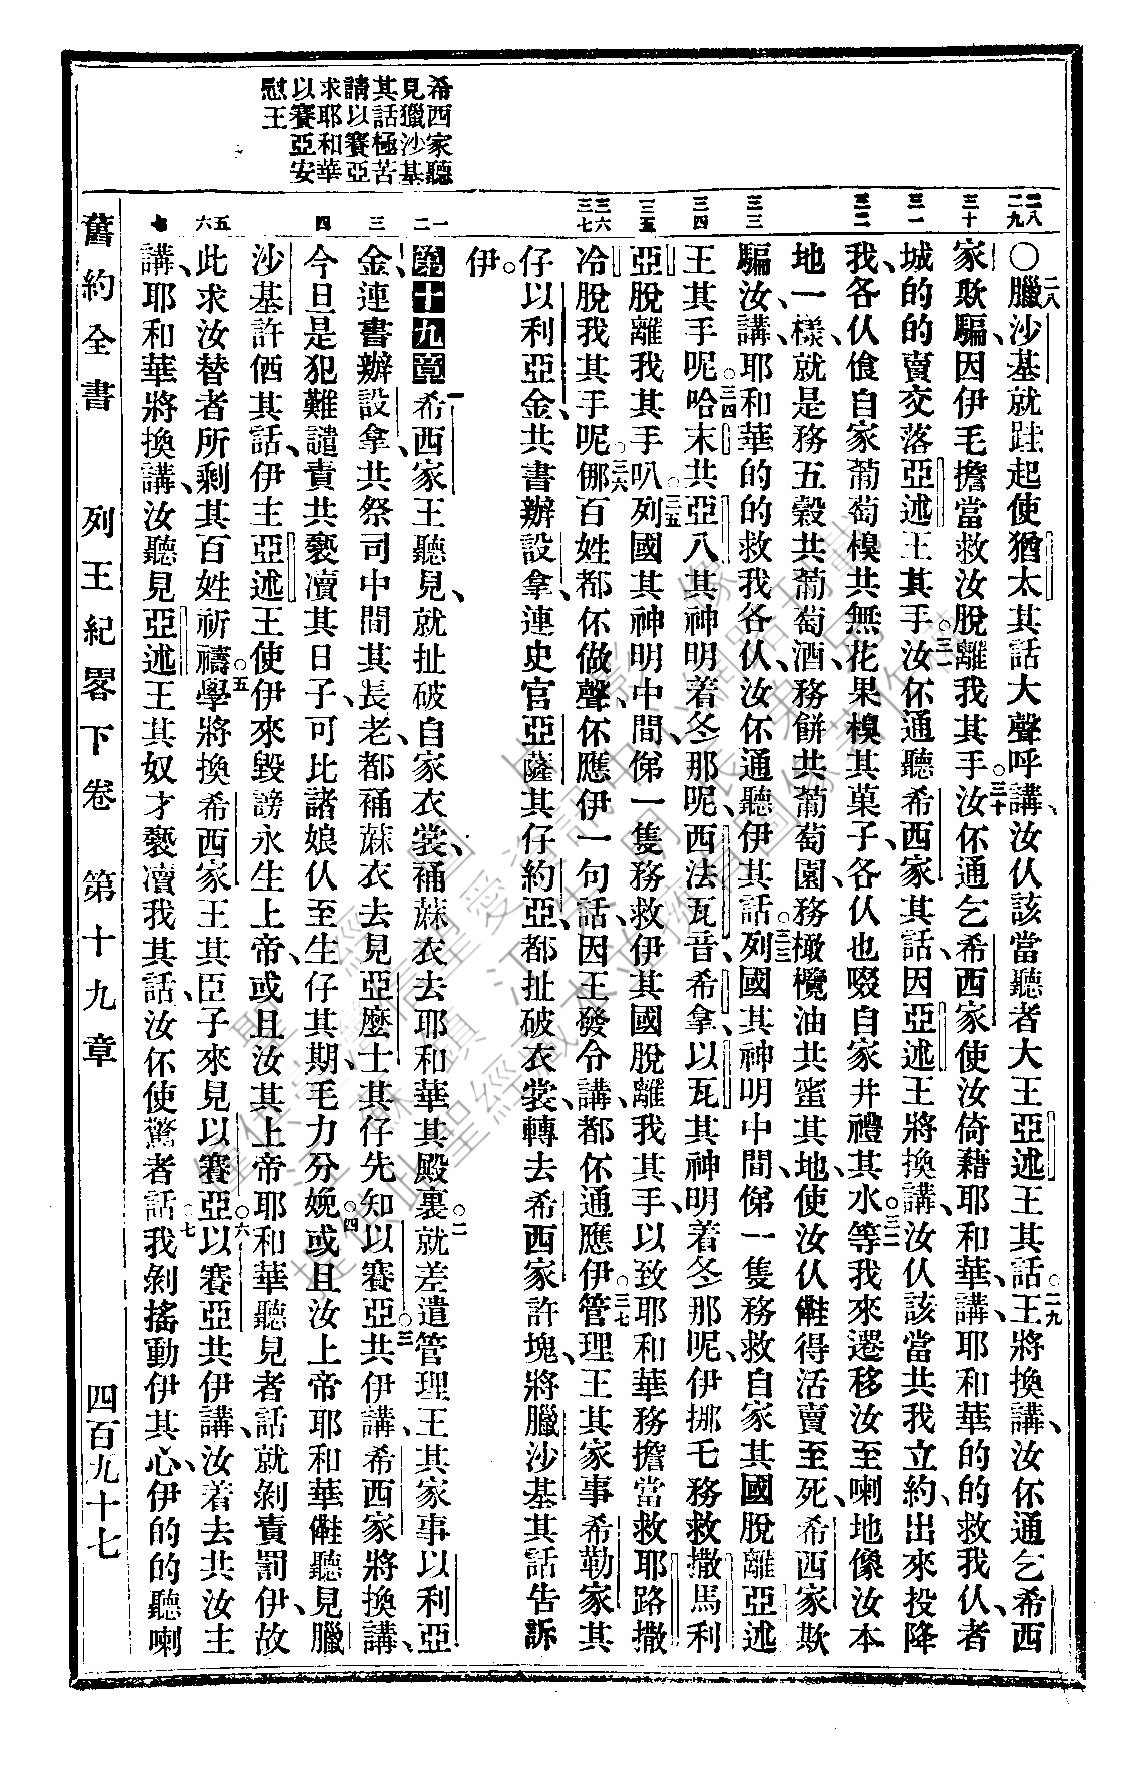 希西家聽
見獵沙基
其話極苦
請以賽亞
求耶和華
以賽亞安
慰王
二八
二九
三十
三一
三二
三三
三四
三五
三六
三七
一
二
三
四
五
六
七
○二八臘沙基就跬起使猶太其話大聲呼講、汝仈該當聽者大王亞述王其話○二九王將換講、汝伓通乞希西
家欺騙、因伊毛擔當救汝脫離我其手○三十汝伓通乞希西家使汝倚藉耶和華、講、耶和華的的救我仈、者
城的的賣交落亞述王其手○三一汝伓通聽希西家其話、因亞述王將換講、汝仈該當共我立約、出來投降
我、各仈飡自家葡萄樖共無花果樖其菓子、各仈也啜自家井禮其水○三二等我來遷移汝至喇地像汝本
地一樣、就是務五穀共葡萄酒、務餅共葡萄園、務橄欖油共蜜其地、使汝仈㒕得活賣至死、希西家欺
騙汝、講、耶和華的的救我各仈、汝伓通聽伊其話○三三列國其神明中間、俤一隻務救自家其國脫離亞述
王其手呢○三四哈末共亞八其神明着冬那呢、西法瓦音希拿、以瓦其神明着冬那呢、伊挪毛務救撒馬利
亞脫離我其手叭○三五列國其神明中間俤一隻務救伊其國脫離我其手、以致耶和華務擔當救耶路撒
冷脫我其手呢○三六㑚百姓都伓做聲、伓應伊一句話、因王發令講、都伓通應伊○三七管理王其家事希勒家其
仔以利亞金、共書辦設拿、連史官亞薩其仔約亞、都扯破衣裳、轉去希西家許塊、將臘沙基其話告訴
伊。
第十九章 一希西家王聽見、就扯破自家衣裳、補蔴衣去耶和華其殿裏○二就差遣管理王其家事以利亞
金、連書辦設拿共祭司中間其長老、都補蔴衣去見亞麼士其仔先知以賽亞○三共伊講、希西家將換講、
今旦是犯難譴責共褻瀆其日子、可比諸娘仈至生仔其期、毛力分娩○四或且汝上帝耶和華㒕聽見臘
沙基許価其話、伊主亞述王使伊來毀謗永生上帝、或且汝其上帝耶和華聽見者話就剝責罰伊、故
此求汝替者所剩其百姓祈禱○五學將換希西家王其臣子來見以賽亞○六以賽亞共伊講、汝着去共汝主
講、耶和華將換講、汝聽見亞述王其奴才褻瀆我其話、汝伓使驚者話○七我剝搖動伊其心、伊的的聽喇
舊約全書 列王紀畧下卷 第十九章 四百九十七